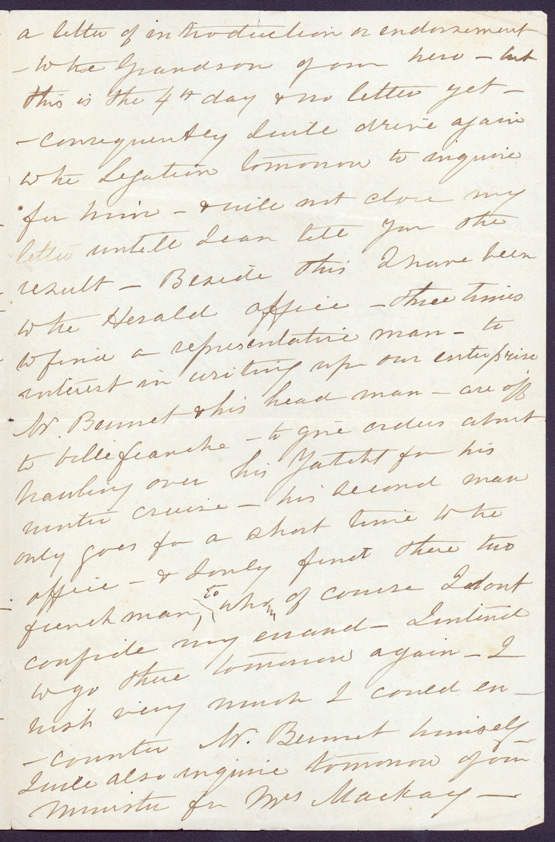 a letter of introduction or endorsement
- to the Grandson of our hero - but
this is the 4th day & no letter yet -
- consequently I will drive again
to the Legation tomorrow to inquire
for him - & will not close my
letter untill I can tell you the
result - Beside this I have been
to the Herald office - three times
to find a representative man - to
interest in writing up our enterprise
Mr. Bennet & his head man - are off
to Villefranche - to give orders about
hauling over his Yatcht for his
winter cruise - his second man
only goes for a short time to the
office - & I only find there two
frenchman, to whom of course I dont
confide my errand - I intend
to go there tomorrow again - I
wish very much I could en-
- counter Mr. Bennet himself
I will also inquire tomorrow of our
Minister for Mrs Mackay -